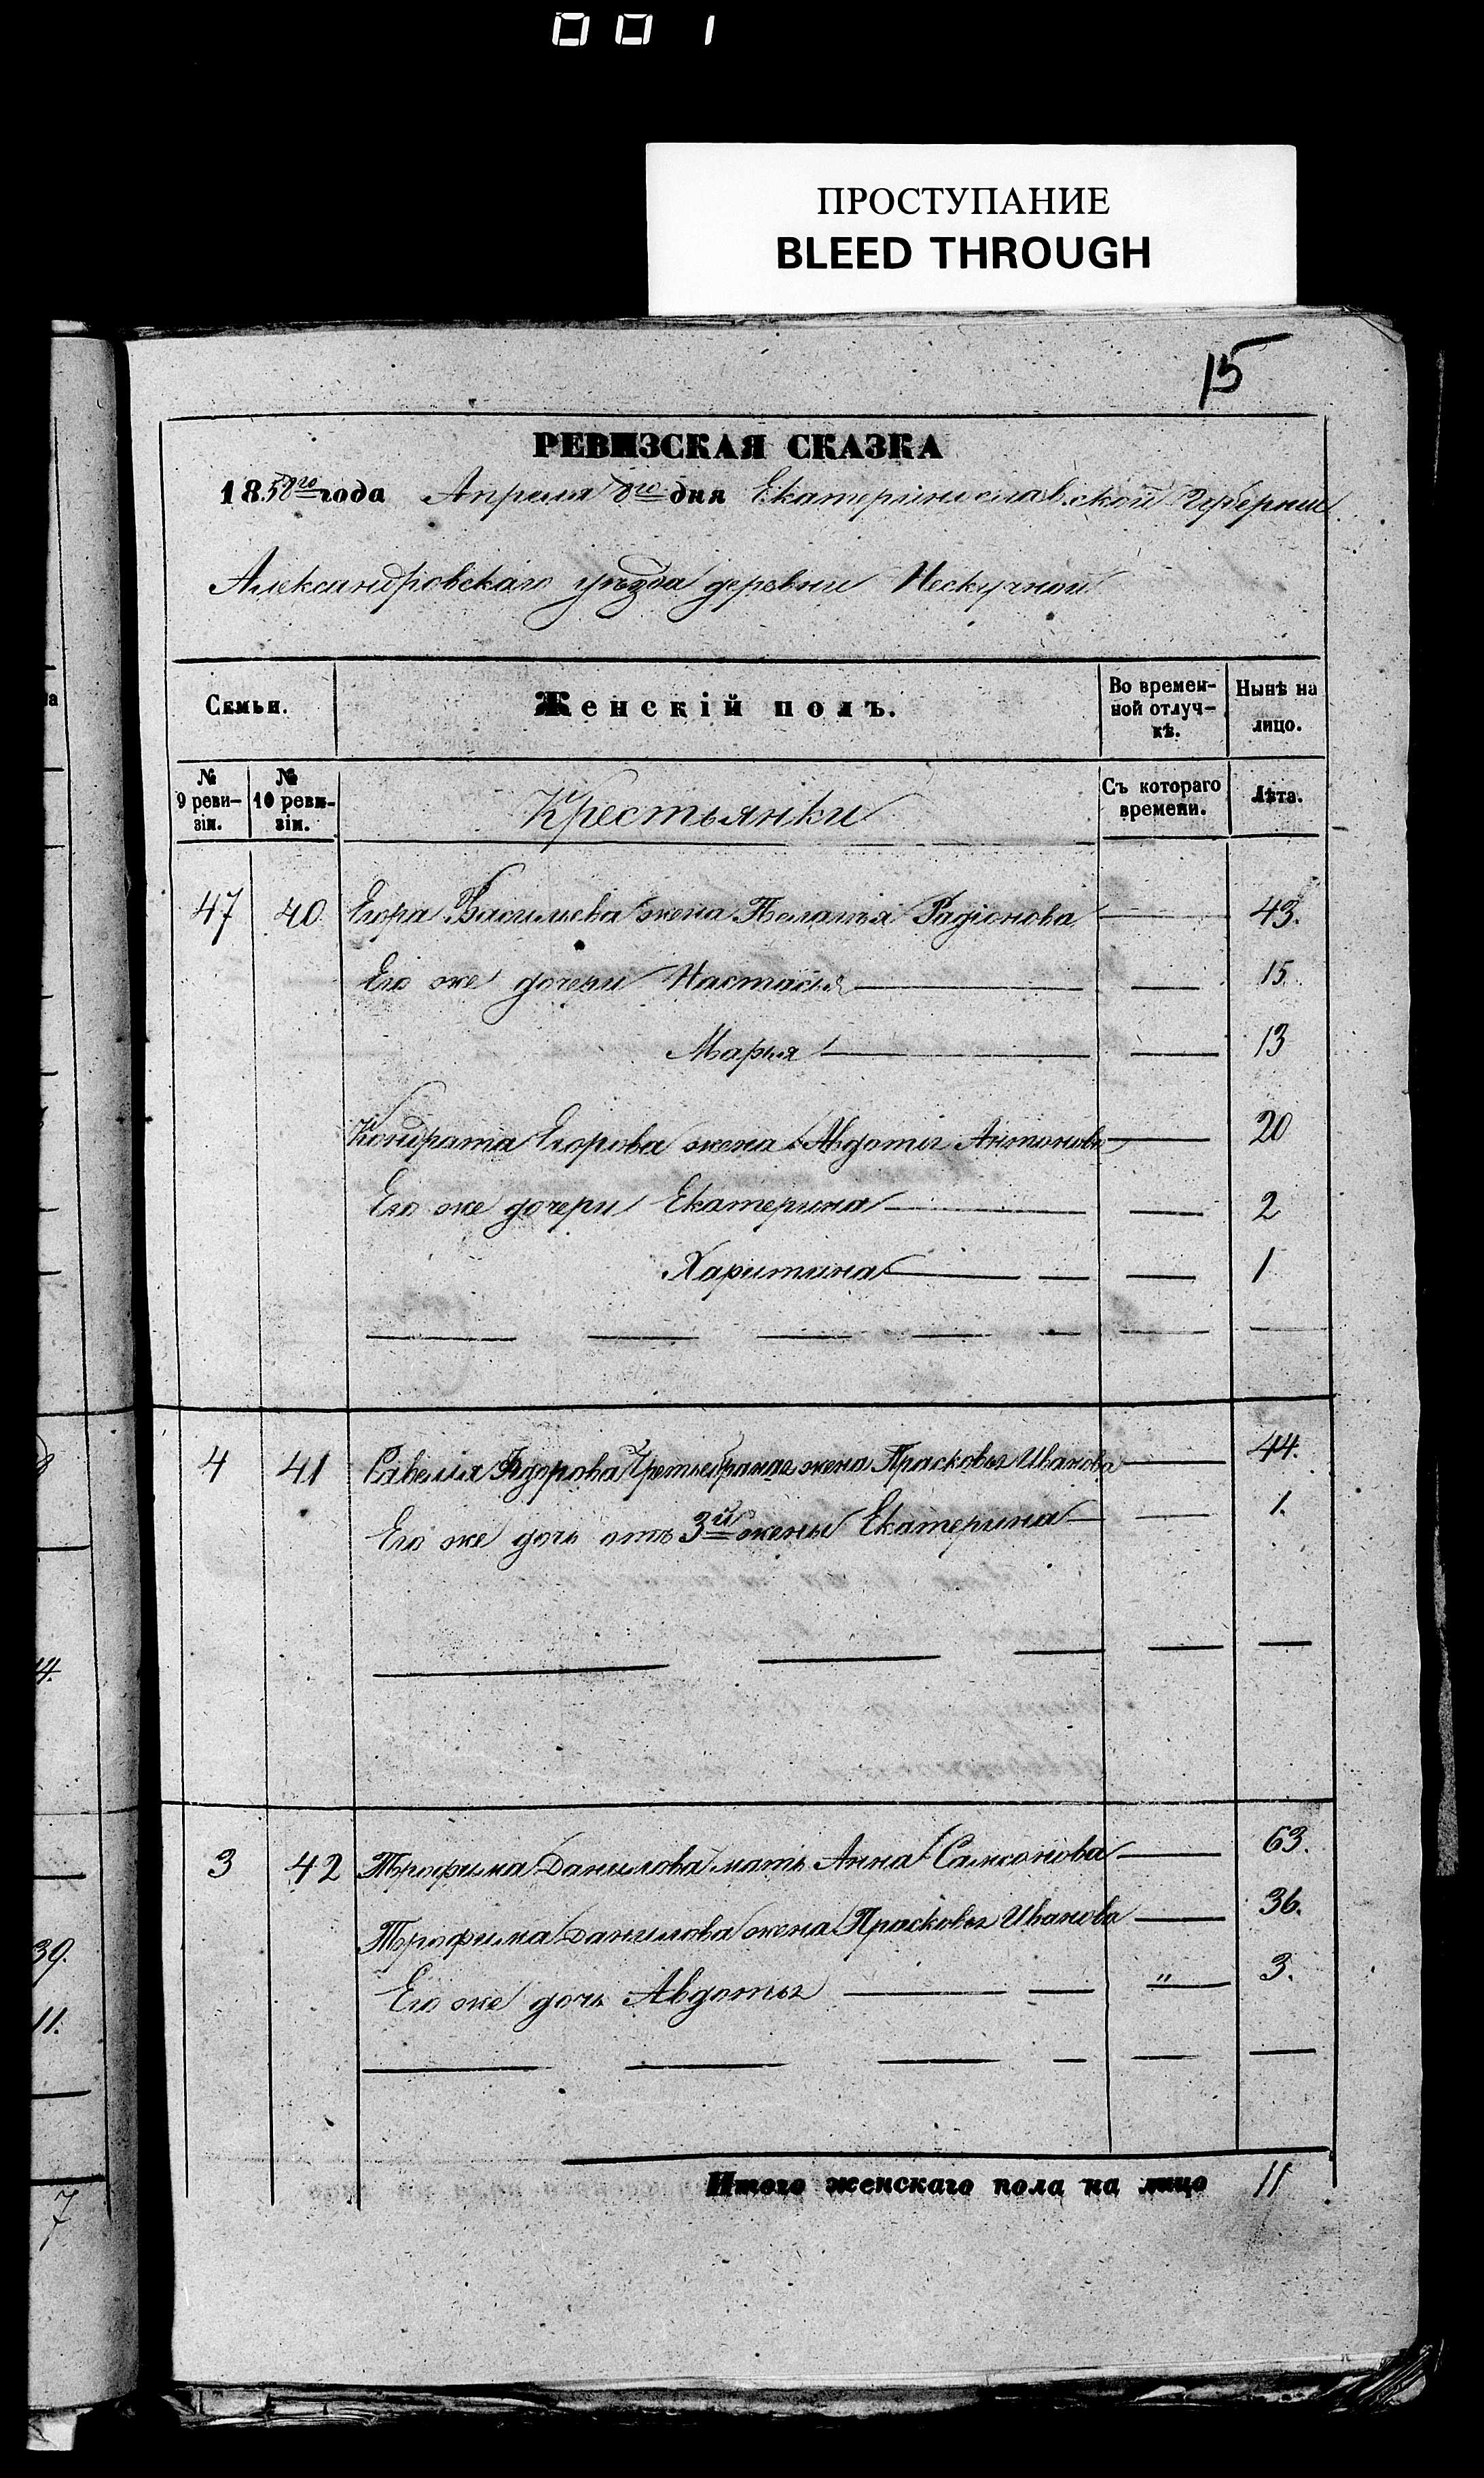 001
ПРОСТУПАНИЕ
BLEED THROUGH
15
РЕВИЗСКАЯ СКАЗКА
1858го года Апреля 8го дня Екатеринославской Губернии
Александровскаго уѣзда деревни Нескучной
Семьи. Женскій полъ. Во времен-ной отлуч-кѣ. Нынѣ на лицо.
№ 9 реви-зіи. № 10 реви-зіи. Крестьянки Съ котораго времени. Лѣта.
47 40 Егора Васильева жена Пелагея Радіонова — 43.
Его же дочери Настасья — — 15.
Марья — — 13
Кондрата Егорова жена Авдотья Антонова — 20
Его же дочери Екатерина — — 2
Харитина — — 1
4 41 Савелія Федорова жена Прасковья Иванова — 44.
Его же дочь отъ 3й жены Екатерина — — 1.
3 42 Трофима Данилова мать Анна Самсонова — 63.
Трофима Данилова жена Прасковья Иванова — 36.
Его же дочь Авдотья — — " — 3.
Итого женскаго пола на лицо 11
4.
39.
11.
7